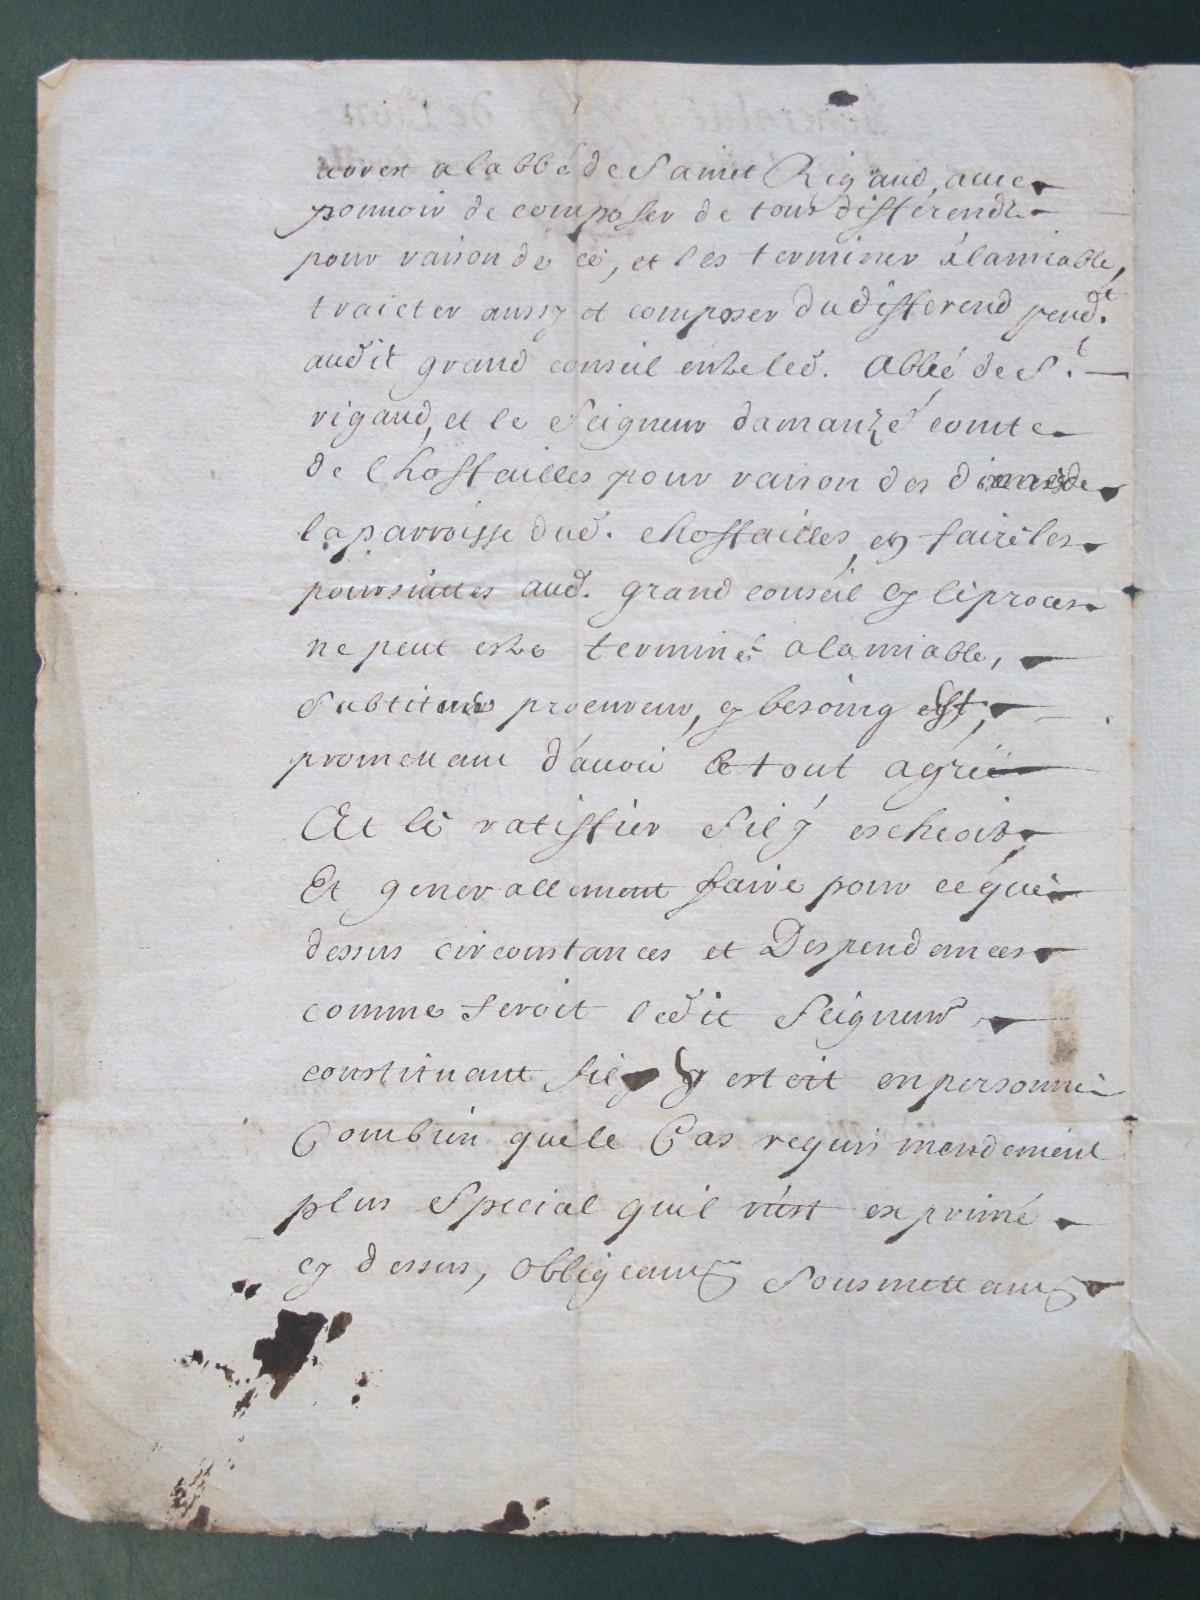 a labbé de Sainct Rigaud, avec
pouvoir de composer de tous differendz
pour raison de ce, et les terminer a lamiable,
traicter aussy et composer du differend pend.t
audit grand conseil entre led. Abbé de S.t
rigaud, et le Seigneur damanzé comte
de Choffailles pour raison des dixmes de
la parroisse dud. choffailles, et faire les
poursuittes aud. grand conseil sy le proces
ne peut estre terminé a lamiable,
Substituer procureur, sy besoing est,
promettant d'avoir le tout agréé
Et le ratiffier sil y eschoit,
Et generallement faire pour ce que
dessus circonstances et Despendences
comme feroit ledit Seigneur
constituant sil y estoit en personne
Combien que le Cas requis mandement
plus Special quil n'est exprimé
cy dessus, obligeant Sousmettant